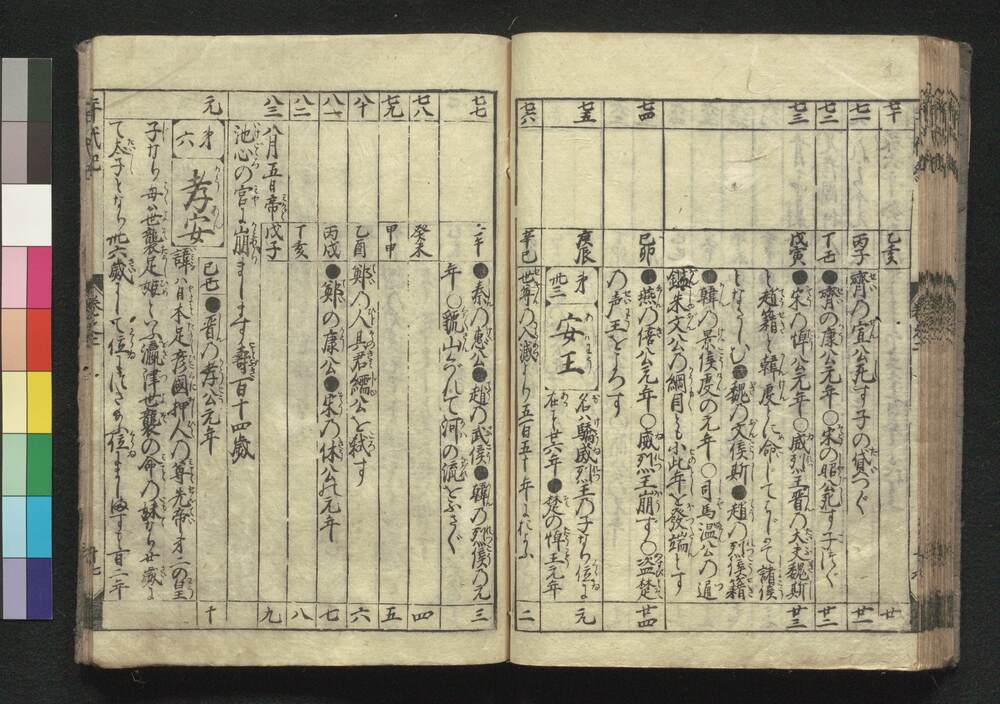 七十
乙亥
廿
七十一
丙子
齊の宣公死す子の貸つぐ
廿一
七十二
丁丑
●齊の康公元年○宋の昭公死す子つぐ
廿二
七十三
戊寅
●宋の悼公元年○威烈王晋の大夫魏斯
廿三
趙籍韓虔に命じてはじめて諸侯
とならしむ●魏の文侯斯●趙の烈侯籍
●韓の景侯虔の元年○司馬温公の通
鑑朱文公の綱目とも小此年を發端とす
七十四
己卯
●燕の僖公元年○威烈王崩ず○盗楚
廿四
の声王をころす
七十五
庚辰
才卅三
安王
名は驕威烈王の子なり位に
在こと廿六年●楚の悼王元年
元
七十六
辛巳
世尊の入滅より五百五十年にあたる
二
七十七
壬午
●秦の惠公●趙の武侯●韓の烈侯の元
三
年○虢山くづれて河の流をふさぐ
七十八
癸未
四
七十九
甲申
五
八十
乙酉
鄭の人其君繻公を弑す
六
八十一
丙戌
●鄭の康公●宋の休公元年
七
八十二
丁亥
八
八十三
八月五日帝
戊子
九
池心の宮に崩まします壽百十四歳
元
才六
孝安
己巳
●晋の孝公元年
十
諱は日本足彦國押人の尊先帝才二の皇
子なり母は世襲足媛といふ瀛津世襲の命の妹なり廿歳に
て太子となり卅六歳にして位につきたまふ位にまします百二年
年代記
卷之一